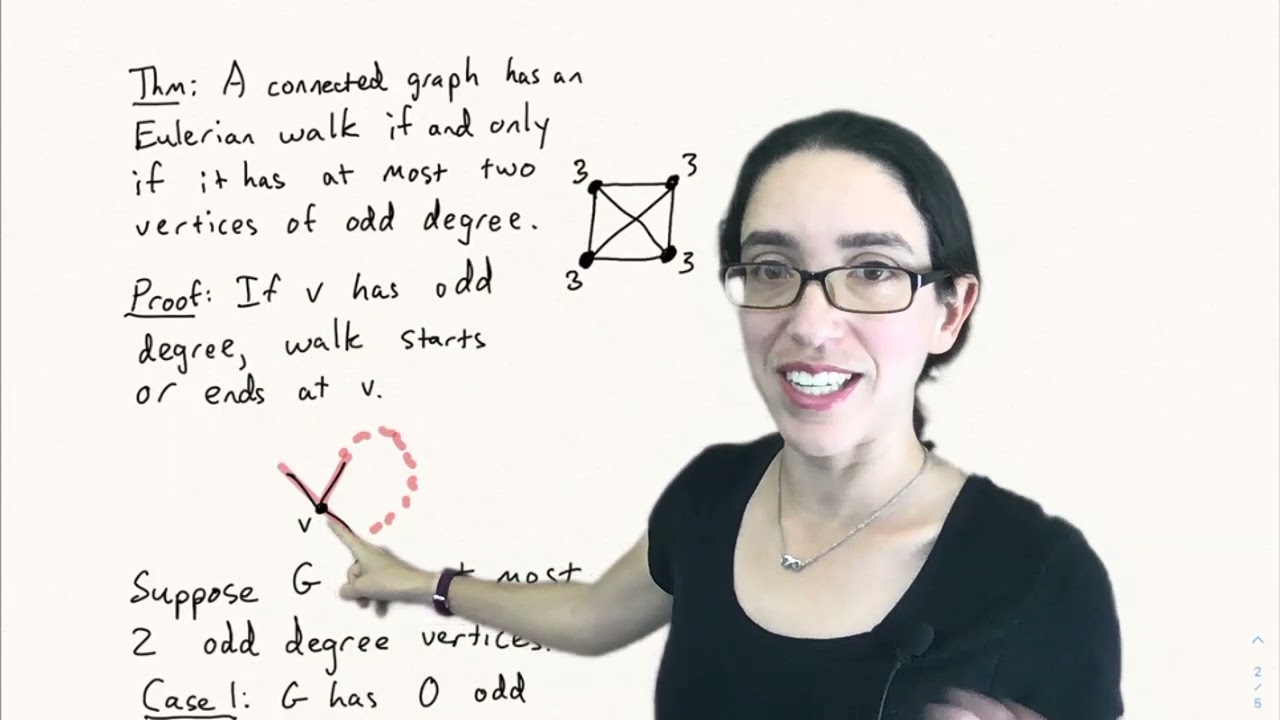 Thm: A connected graph has an
Eulerian walk if and only
if it has at most two
vertices of odd degree.
3 3
3 3
Proof: If v has odd
degree, walk starts
or ends at v.
v
Suppose G most
2 odd degree vertices.
Case 1: G has 0 odd
2/5